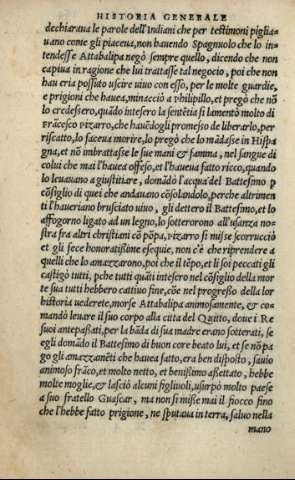 HISTORIA GENERALE
dechiaraua le parole dell'Indiani che per testimoni piglia-
uano come gli piaceua, non hauendo Spagnuolo che lo in-
tendesse Attabalipa negò sempre quello, dicendo che non
capiua in ragione che lui trattasse tal negocio, poi che non
haueria possuto uscire uiuo con esso, per le molte guardie,
e prigioni che hauea, minacciò a Philipillo, et pregò che nō
lo credessero, quādo intesero la sentētia si lamentò molto di
Frācesco Pizarro, che hauēdogli promesso de liberarlo, per
riscatto, lo faceua morire, lo pregò che lo mādasse in Hispa
gna, et nō imbrattasse le sue mani & famma, nel sangue di
colui che mai l'hauea offeso, et l'haueua fatto ricco, quando
lo leuauano a giustitiare, domādò l'acqua del Battesimo p
cōsiglio di quei che andauano cōsolandolo, perche altrimen
ti l'haueriano brusciato uiuo, gli dettero il Battesimo, et lo
affogorno ligato ad un legno, lo sotterorono all'usanza no-
stra fra altri christiani cō pōpa, Pizarro si misse scorruccio
et gli fece honoratissime esequie, non c'è che riprendere a
quelli che lo amazzarono, poi che il tēpo, et li soi peccati gli
castigò tutti, pche tutti quāti intesero nel cōsiglio della mor
te sua tutti hebbero cattiuo fine, cōe nel progresso della lor
historia uederete, morse Attabalipa animosamente, & co-
mandò leuare il suo corpo alla citta del Quitto, doue i Re
suoi antepassati, per la bāda di sua madre erano sotterati, se
egli domādò il Battesimo di buon core beato lui, et se nō pa
go gli amazzamēti che hauea fatto, era ben disposto, sauio
animoso frāco, et molto netto, et benissimo assettato, hebbe
molte moglie, & lasciò alcuni figliuoli, usurpò molto paese
a suo fratello Guascar, ma non si misse mai il fiocco fino
che l'hebbe fatto prigione, ne sputaua in terra, saluo nella
mano